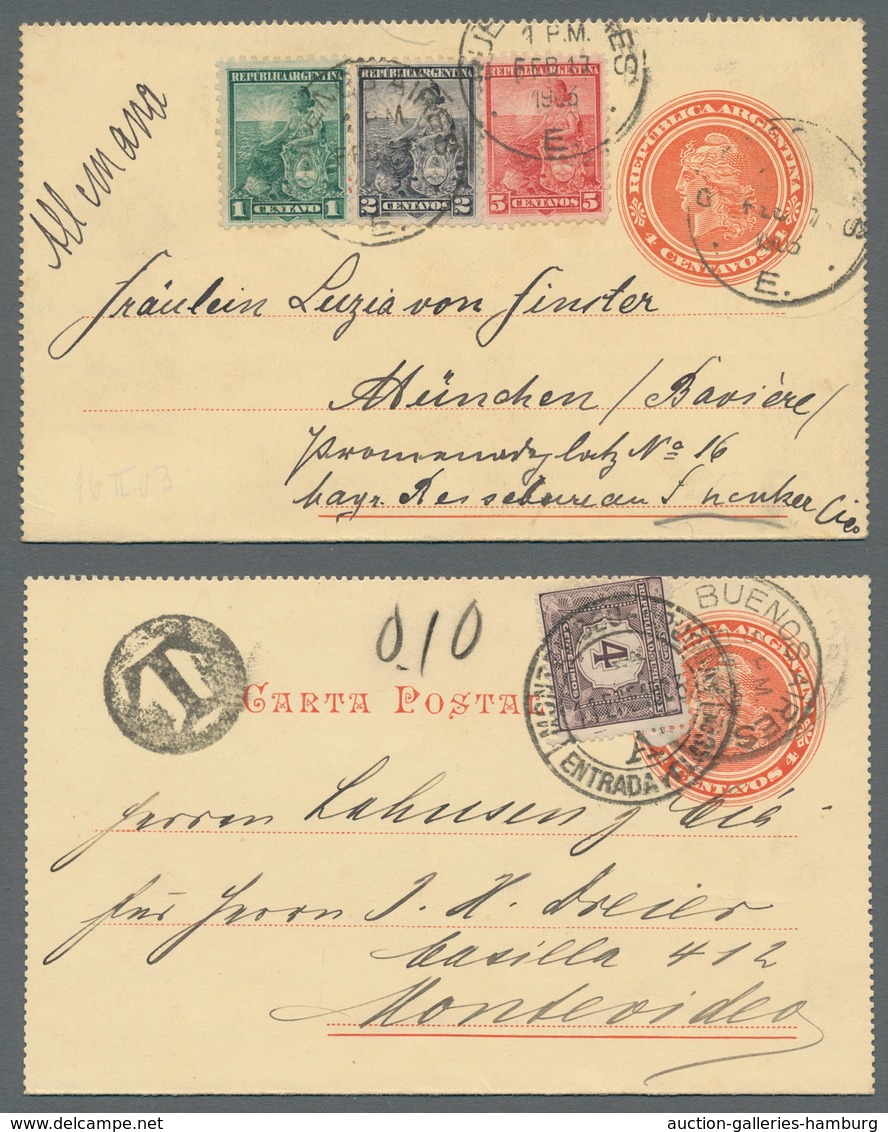 Allemana
REPÚBLICA ARGENTINA
1 CENTAVO 1
REPÚBLICA ARGENTINA
2 CENTAVOS 2
REPÚBLICA ARGENTINA
5 CENTAVOS 5
AIRES
E.
1 P.M.
FEB 17
1903
E.
REPÚBLICA ARGENTINA
4 CENTAVOS 4
1903
E.
Fräulein Luzia von Finster
München / Bavière /
Promenadeplatz No 16
bayr. Reisebureau Schenker Cie
16 II 03
T
0.10
CARTA POSTAL
4
BUENOS AIRES
ENTRADA
CENTAVOS 4
Herren Lahusen y Cia
für Herrn J. H. Dreier
Casilla 412
Montevideo
auction-galleries-hamburg